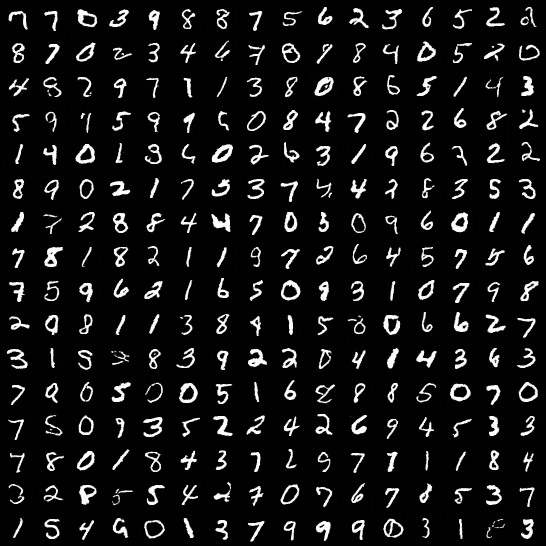 7 7 0 3 9 8 8 7 5 6 2 3 6 5 2 2
8 7 0 2 3 4 6 7 8 9 8 4 0 5 2 0
4 8 2 9 7 1 1 3 8 0 8 6 5 1 4 3
5 9 4 5 9 9 5 0 8 4 7 2 2 6 8 2
1 4 0 1 3 6 0 2 6 3 1 9 6 2 2 2
8 9 0 2 1 7 5 3 7 4 2 8 3 5 3
1 7 2 8 8 4 4 7 0 3 0 9 6 0 1 1
7 8 1 8 2 1 1 9 7 2 6 4 5 7 5 6
7 5 9 6 2 1 6 5 0 9 3 1 0 7 9 8
2 9 8 1 1 3 8 9 1 5 0 6 6 2 7
3 1 5 8 3 9 2 2 0 4 1 4 3 6 3
7 9 0 5 0 0 5 1 6 8 8 8 5 0 7 0
7 5 0 9 3 5 2 2 4 2 6 9 4 5 3 3
7 8 0 1 8 4 3 7 2 9 7 7 1 1 8 4
3 2 8 5 5 4 2 7 0 7 6 7 8 5 3 7
1 5 4 9 0 1 3 7 9 9 9 0 3 1 3